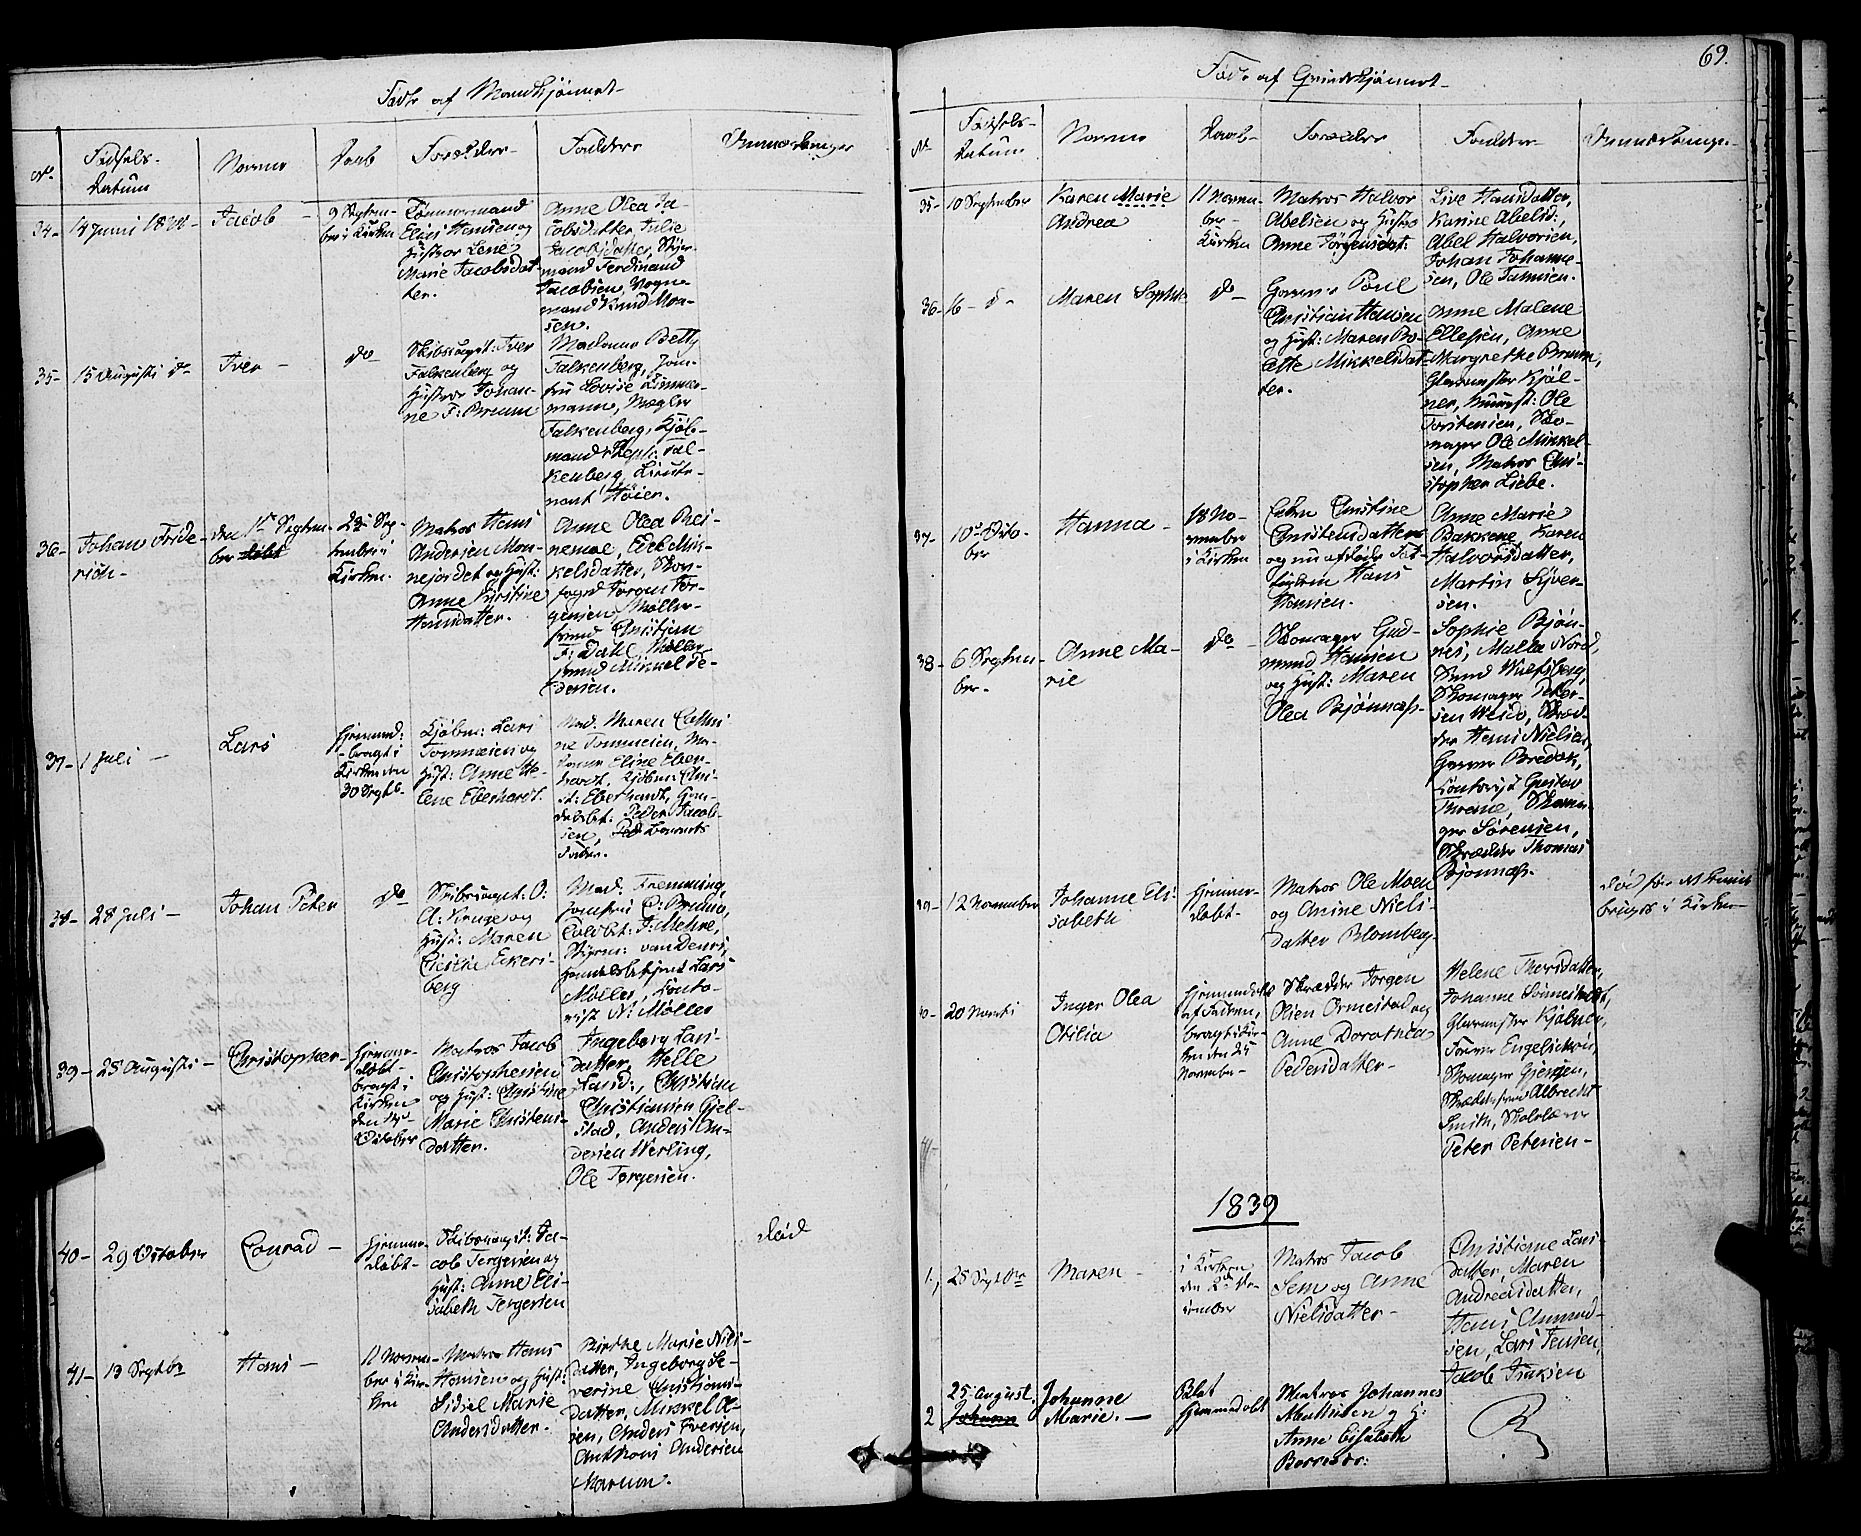 Fødte af Mandkjønnet
No.
Fødsels-
Datum
Navne
Daab
Forældre
Faddere
Anmærkninger
34-
14 Juni 1838-
Jacob
9 Septem-
ber i Kirken
Tømmermand
Elias Hansen og
Hustroe Lene
Marie Jacobsdat
ter.
Anne Olea Ja-
cobsdatter, Julie
Jacobsdatter, Styr-
mand Ferdinand
Jacobsen, Vogn-
mand Knud Mon-
sen.
35-
15 Augusti do
Iver -
do
Skibscapt: Iver
Falkenberg og
Hustroe Johan-
ne F: Bruun
Madame Betty
Falkenberg, Jom-
fru Lovise Zimmer-
mann, Mægler
Falkenberg, Kjøb-
mand Steph: Fal-
kenberg, Lieute-
nant Höier.
36-
den 1te Septem-
ber
Johan Fride-
rich-
23de Sep-
tember i
Kirken.
Matros Hans
Andersen Mon-
nejordet og Hust:
Anne Kirstine
Hansdatter.
Anne Olea Rei-
nemoe, Edel Min-
kelsdatter, Skov-
foged Jørgen Jør-
gensen, Møller-
svend Christian
F: Dahl, Møller
svend Minkel Pe-
dersen.
37-
1 Juli -
Lars
Hjemmed:
bragt i
Kirken den
30 Septb.
Kjøbm: Lars
Tommesen og
Hust: Anne He-
lene Eberhardt.
Mad. Maren Cathri
ne Tommesen, Ma-
dame Eline Eber-
hardt, Kjøbm: Chri
st: Eberhardt, Han-
delsbet: Peder Jacob-
sen, Barnets
Fader.
38-
28 Juli -
Johan Peter
do
Skibscapt: O.
A: Kruge og
Hust: Maren
Eckers-
berg
Mad: Fremming,
Jomfru C: Bruun,
Toldbt: J: Mehre,
Styrm: van Deurs,
Handelsbetjent Lars
Møller, Conto-
rist N: Møller
39-
25 Augusti -
Christopher-
Hjemme-
døbt-
bragt i
Kirken
den 14de
October
Matros Jacob
Christophersen
og Hust: Christine
Marie Christens-
datter.
Ingeborg Lars-
datter, Helle
Larsd:, Christian
Christiansen Gjel-
stad, Anders An-
dersen Werling,
Ole Jørgensen.
40-
29 October
Conrad -
Hjemme-
døbt-
Skibscapt: Ja-
cob Jørgensen og
Hust: Anne Eli-
sabeth Jørgensen
død
41-
13 Septbr
Hans -
11 Novem-
ber i Kir-
ken
Matros Hans
Hansen og Hust:
Sidsel Marie
Andersdatter.
Birthe Marie Niels-
datter, Ingeborg Se-
verine Christians-
datter, Mikkel O-
sen, Anders Iversen,
Anthoni Andersen
Marum.
69.
Fødte af Qvindekjønnet
No
Fødsels-
Datum
Navne
Daab-
Forældre
Faddere
Anmærkninger-
35-
10 September
Karen Marie
Andrea
11 Novem-
ber-
Kirken
Matros Halvor
Abelsen og Hustroe
Anne Jørgensdat:
Live Hansdatter,
Karine Abelsd:,
Abel Halvorsen,
Johan Johanne-
sen, Ole Jansen.
36-
16 - d -
Maren Sophie
do -
Garver Poul
Christian Hansen
og Hust: Maren Bo-
lette Minkelsdat-
ter.
Anne Malene
Ellefsen, Anne
Margrethe Bruun,
Glarmester Kjöl-
ner, Muurst: Ole
Torstensen, Sko-
mager Ole Minkel-
sen, Matros Chri-
stopher Liebe.
37-
10de Octo-
ber
Hanna -
18 No-
vember
i Kirken
Enken Christine
Christensdatter
og nu afdøde
Hans
Hansen.
Anne Marie
Bakkene, Karen
Halvorsdatter,
Martin Syver-
sen.
38-
6 Septem-
ber-
Anne Ma-
rie
do
Skomager Gud-
mund Hansen
og Hust: Maren
Olea Bjönnæss-
Sophie Bjön-
nes, Malla Nord,
Svend Wulfsberg,
Skomager Peter-
sen Weido, Skræd-
der Hans Nielsen,
Garver Bredok,
Contorist Gustav
Thrane, Skoma-
ger Sørensen,
Skrædder Thomas
Bjönnæss.
39-
12 November
Johanne Eli-
sabeth
Hjemme-
døbt-
Matros Ole Moen
og Anine Niels-
datter Blomberg-
død før det kunde
bringes i Kirken
40-
20 Novbr
Inger Olea
Otilia
Hjemmedøbt
af Faderen,
bragt i Kir-
ken den 25
November-
Skrædder Jørgen
Olsen Ormestad og
Anne Dorothea
Pedersdatter-
Helene Thorsdatter,
Johanne Sönnestvedt,
Glarmester Kjölner,
Farver Engelschiøn,
Skomager Gjersøn,
Skræddersvend Albrecht
Smith, Skolelærer
Peter Petersen -
41-
1839
1.
25 Septbr
Maren -
i Kirken
den 2de De-
cember
Matros Jacob
Sem og Anne
Nielsdatter -
Christiane Lars-
datter, Maren
Andreasdatter,
Hans Amund-
sen, Lars Jensen,
Jacob Isaksen
2
25 August.
Johann
Johanne
Marie. -
Blot
Hjemmedøbt
Matros Johannes
Mathisen og H:
Anne Elisabeth